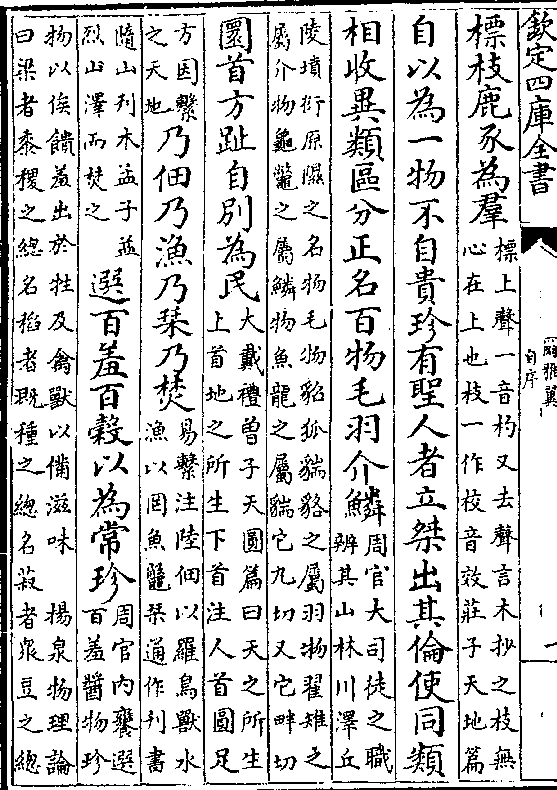 欽定四庫全書
爾雅翼
自序
標枝鹿豕為羣標上聲一音杓又去聲言木抄之枝無
心在上也枝一作校音效莊子天地篇
自以為一物不自貴珍有聖人者立桀出其倫使同類
相收異類區分正名百物毛羽介鱗周官大司徒之職
辨其山林川澤丘
陵墳衍原隰之名物毛物貂狐貒貉之屬羽物翟雉之
屬介物龜鼈之屬鱗物魚龍之屬貒它九切又它畔切
圜首方趾自別為民大戴禮曾子天圜篇曰天之所生
上首地之所生下首注人首圜足
方因繫
之天地乃佃乃漁乃栞乃焚易繫注陸佃以羅鳥獸水
漁以罔魚鼈栞通作刊書
隨山刋木孟子益
烈山澤而焚之選百羞百穀以為常珍周官内饔選
百羞醬物珍
物以俟饋羞出於牲及禽獸以備滋味 楊泉物理論
曰梁者黍稷之總名稻者溉種之總名菽者衆豆之總